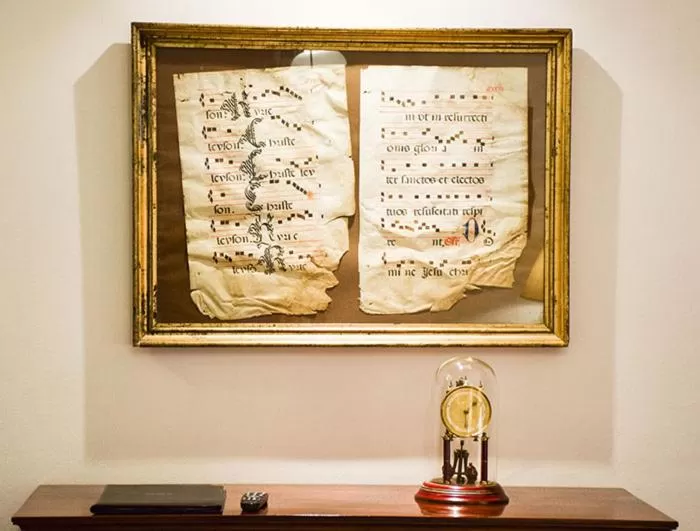 son. Kyrie
leyson. Christe
leyson. Christe ley
son. Christe
leyson. Kyrie
leyson. Kyrie
in vt in resurrecti
onis gloria in
ter sanctos et electos
tuos resuscitati respi
re nt. O
mi ne Jesu chri